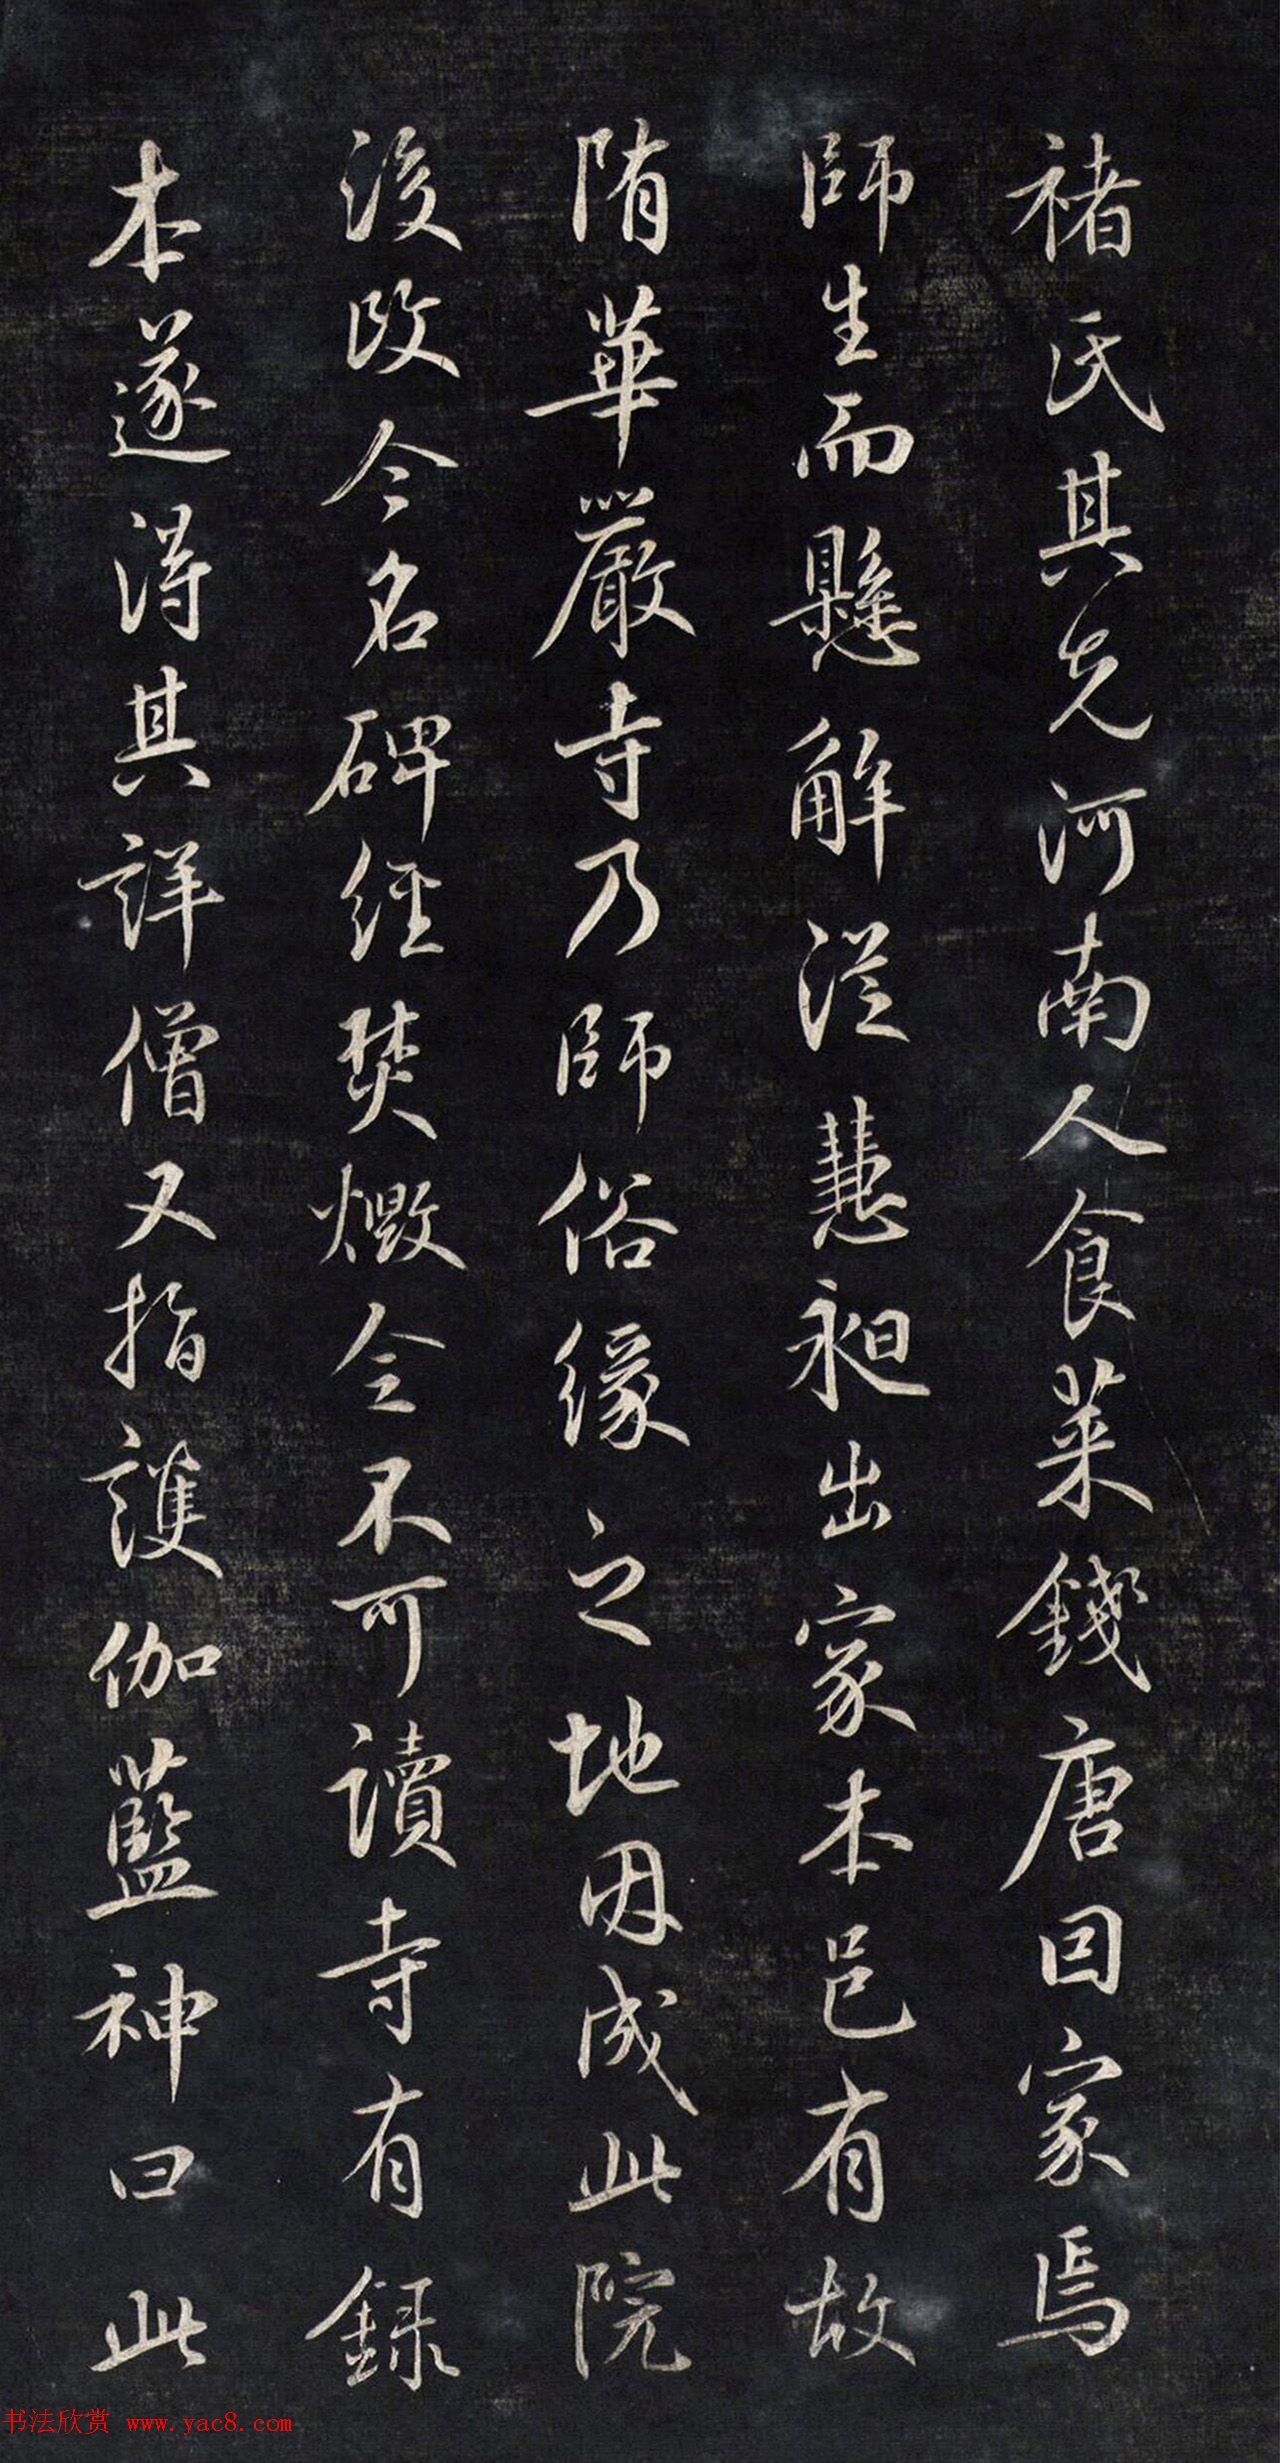 褚氏其先河南人食菜錢唐因家焉
師生而懸解從慧昶出家本邑有故
隋華嚴寺乃師俗緣之地因成此院
後改今名碑經焚燬今不可讀寺有錄
本遂得其詳僧又指護伽藍神曰此
书法欣赏 www.yac8.com